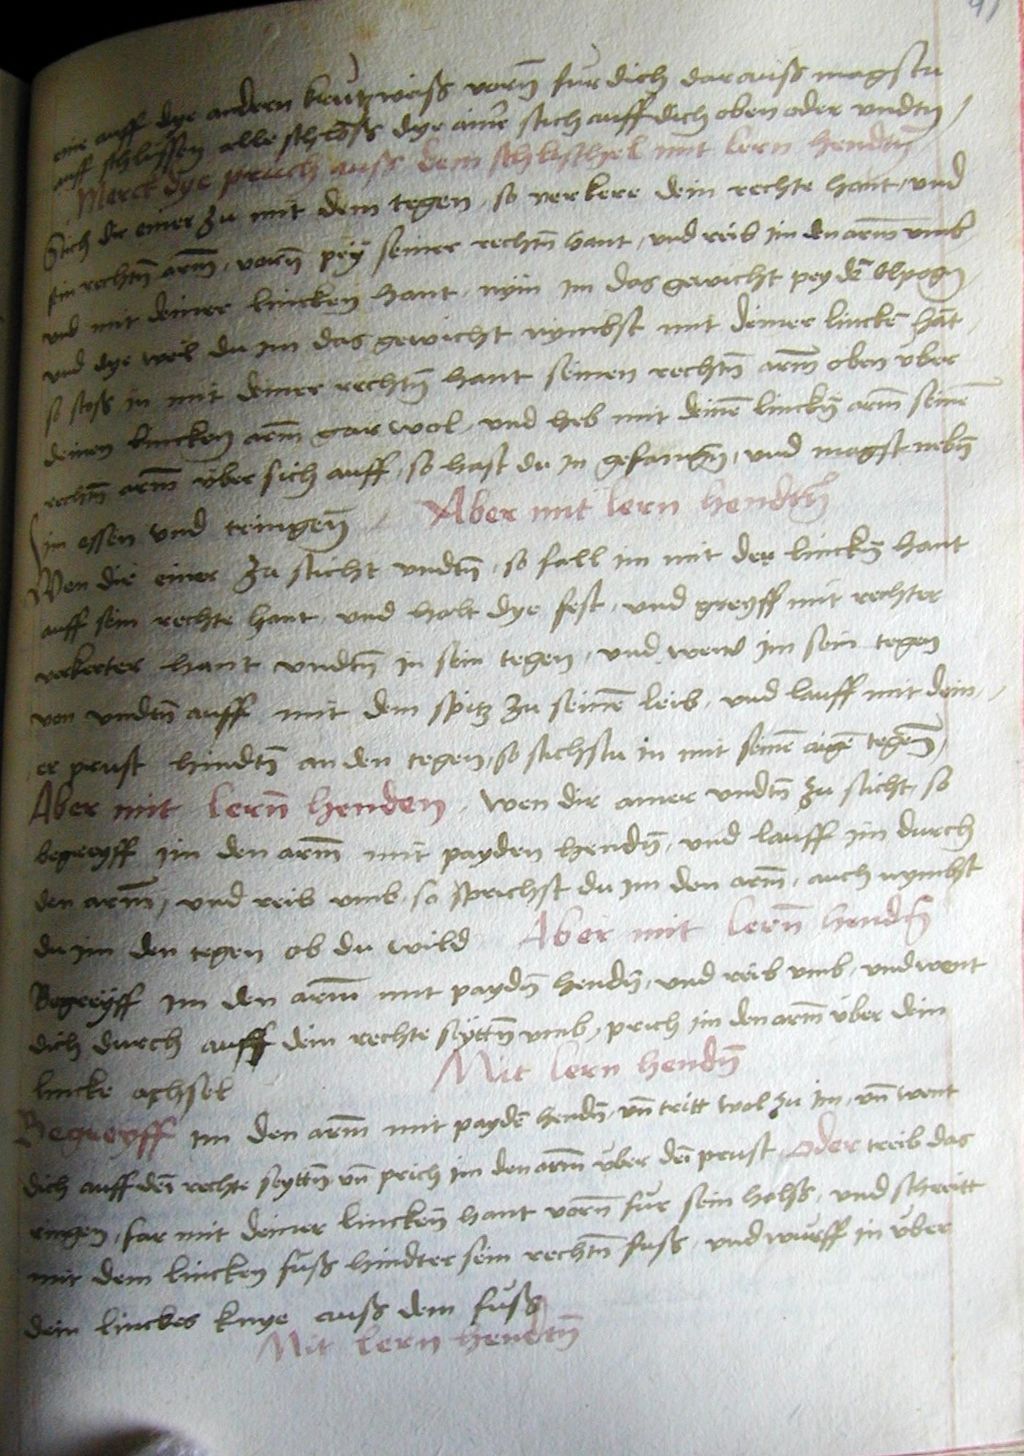 eine auff dye andern kreutzweiß vorñ fur dich darauss magstu
auff schlissen alle schloss dye ainer stich auff dich oben oder vndtñ
Merck dye pruch auss dem schlisthel mit lern hendtñ
Sticht dir einer zu mit dem tegen so verkere dein rechte hant vnd
sein rechtñ arm vorñ pey seiner rechtñ hant vnd reib im den arm vmb
vnd mit deiner lincken hant nym im das gewicht pey dē Elpogñ
vnd dye weil du im das gewicht nymbst mit deiner linckē hāt
so stoss in mit deiner rechtñ hant seinen rechtñ arm oben über
deinen lincken arm gar wol vnd heb mit deinē linckñ arm seinē
rechtñ arm über sich auff so hast du in gefangñ vnd magst nebñ
im essen vnd tringeñ Aber mit lern hendtñ
Wen dir einer zu sticht vndtñ so fall im mit der linckñ hant
auff sein rechte hant vnd halt dye fest vnd greyff mit rechter
verkerter hant vndtñ in sein tegen vnd wend im sein tegen
von vndtñ auff mit dem spitz zu seinē leib vnd lauff mit dein
er prust hindtñ an den tegen so stichstu in mit seinē aigē tegeñ
Aber mit lerñ henden Wen dir ainer vndtñ zu sticht so
begreyff im den arm mit payden hendñ vnd lauff im durch
den arm vnd reib vmb so prichst du im den arm auch nymbst
du im den tegen ob du wild Aber mit lerñ hendtñ
Begreyff im den arm mit paydñ hendñ vnd reib vmb vnd went
dich durch auff dein rechte seyttñ vmb prich im den arm über dein
lincke achsel Mit lern hendñ
Begreyff im den arm mit paydē hendñ vñ tritt wol zu im vñ went
dich auff deī rechte seyttñ vñ prich im den arm über deī prust oder treib das
ringen far mit deiner linckeñ hant vorñ fur sein halss vnd schreitt
mit dem lincken fuss hindter sein rechtñ fuss vnd wurff in über
dein linckes knye auss dem fuss
Mit lern hendtñ